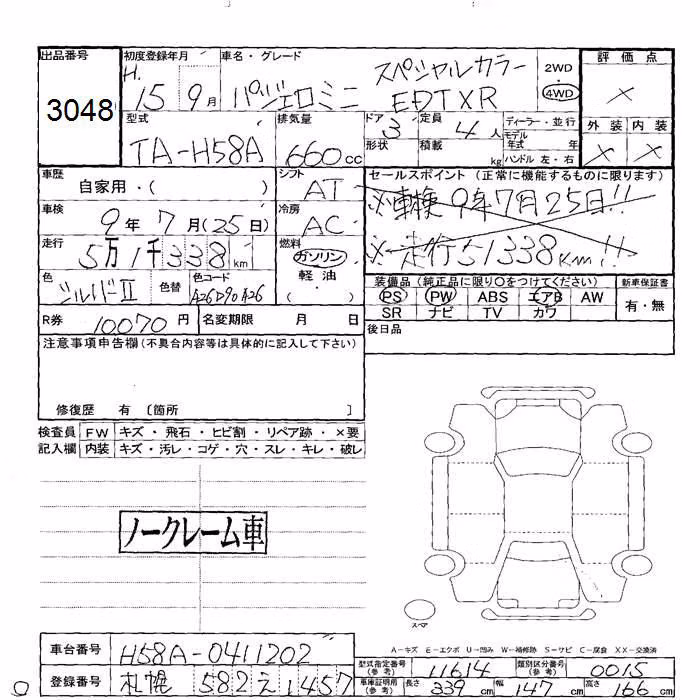 出品番号
3048
初度登録年月 車名・グレード
H. 15 9月 パジェロミニ スペシャルカラー
EDTXR
2WD・4WD
評価点
×
外装 内装
× ×
型式 排気量 ドア 定員 ディーラー・並行
TA-H58A 660cc 3 4人
モデル年式 年
形状 積載 kg ハンドル 左・右
車歴 自家用・( )
シフト AT
セールスポイント (正常に機能するものに限ります)
※車検 9年7月25日!!
車検 9年7月(25日)
冷房 AC
※走行51338Km!!
走行 5万1千338km
燃料 ガソリン・軽油・( )
色 シルバーII 色替 色コード A26D90A26
装備品 (純正品に限り○をつけてください) 新車保証書
PS PW ABS エアB AW 有・無
SR ナビ TV カワ
R券 10070円 名変期限 月 日
後日品
注意事項申告欄(不具合内容等は具体的に記入して下さい)
修復歴 有 [箇所 ]
検査員 FW キズ・飛石・ヒビ割・リペア跡・×要
記入欄 内装 キズ・汚レ・コゲ・穴・スレ・キレ・破レ
ノークレーム車
スペア
A-キズ E-エクボ U-凹み W-補修跡 S-サビ C-腐食 XX-交換済
車台番号 H58A-0411202
型式指定番号(参考) 11614 類別区分番号(参考) 0015
登録番号 札幌 582 え 457
車庫証明用(参考) 長さ 339cm 幅 147cm 高さ 166cm